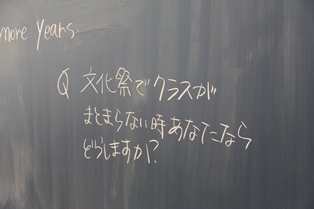 more Years.
Q 文化祭でクラスが
まとまらない時あなたなら
どうしますか?